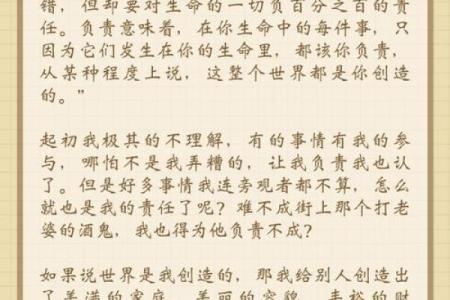 错，但却要对生命的一切负百分之百的责
任。负责意味着，在你生命中的每件事，只
因为它们发生在你的生命里，都该你负责，
从某种程度上说，这整个世界都是你创造
的。”
起初我极其的不理解，有的事情有我的参
与，哪怕不是我弄糟的，让我负责我也认
了。但是好多事情我连旁观者都不算，怎么
就也是我的责任了呢？难不成街上那个打老
婆的酒鬼，我也得为他负责不成？
如果说世界是我创造的，那我给别人创造出
了美满的家庭、美丽的容貌、丰裕的财